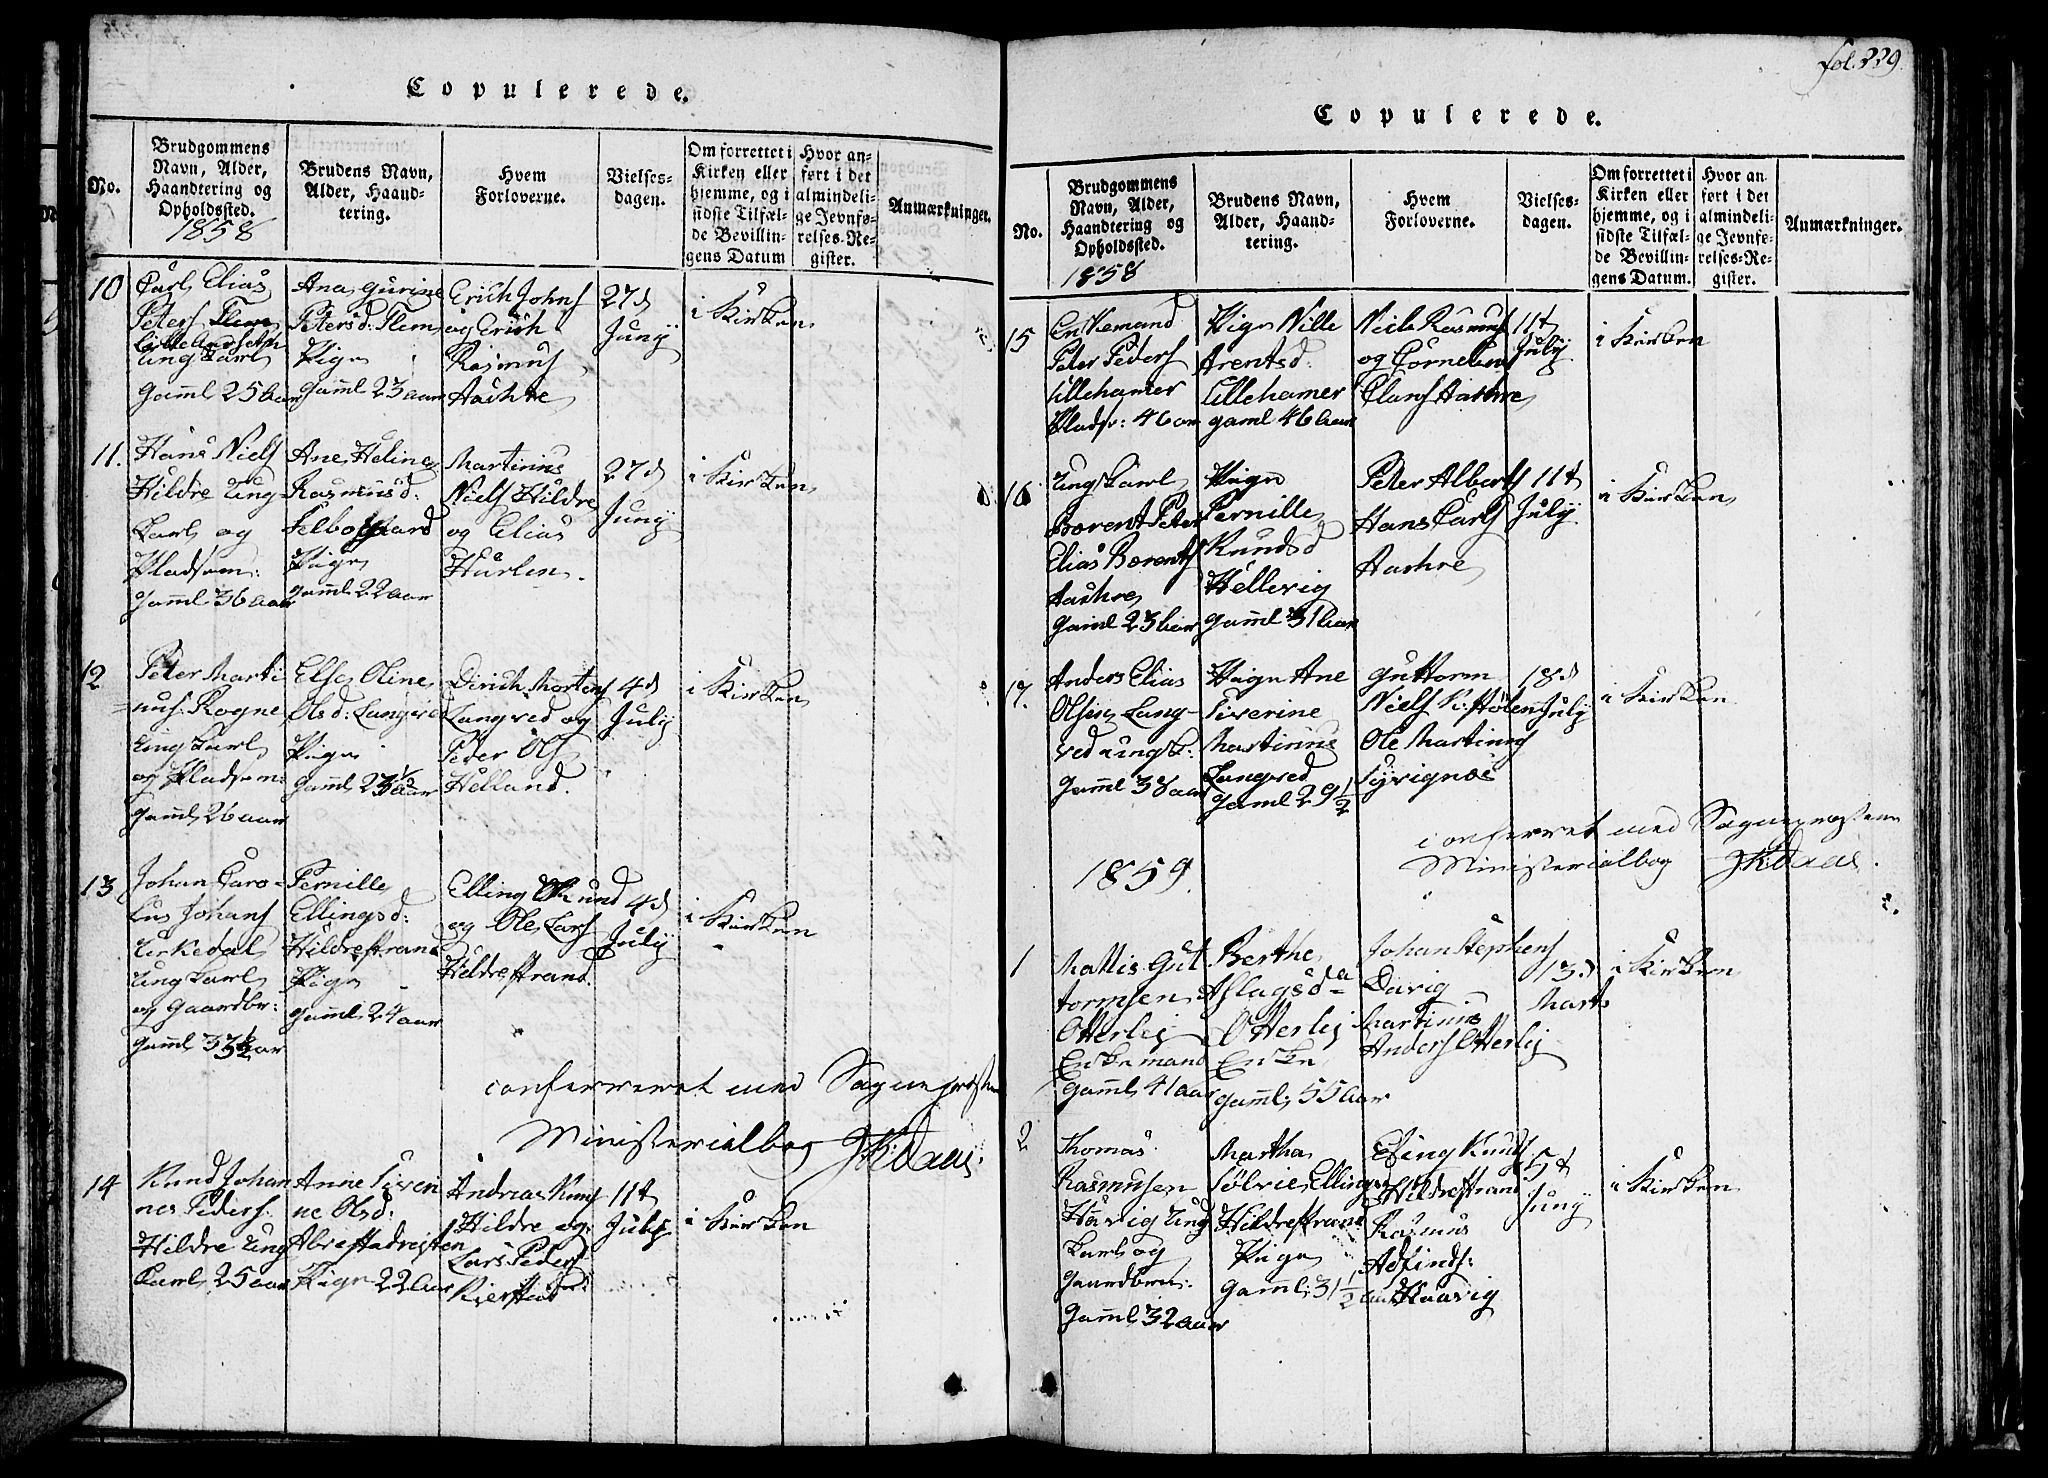 Copulerede.
No.
Brudgommens Navn, Alder, Haandtering og Opholdssted.
1858
Brudens Navn, Alder, Haandtering.
Hvem Forloverne.
Vielsesdagen.
Om forrettet i Kirken eller hjemme, og i sidste Tilfælde Bevillingens Datum
Hvor anført i det almindelige Jevnførelses-Register.
Anmærkninger.
10
Carl Elias
Peters Flem
Lille
Ungkarl
Gaml 25 Aar
Ana Gurine
Petersd: Flem
Pige
Gaml 23 aar
Erich Johns
og Erich
Rasmus
Aachre
27d
Junij
i Kirken
11.
Hans Niels
Hildre Ung
Karl og
Pladsem:
Gaml 36 aar
Ane Heline
Rasmusd:
Pige
Gaml 22 aar
Martinus
Niels Hildre
og Elias
Hurlen.
27d
Junij
i Kirken
12
Peter Marti
nus: Rogne
Ungkarl
og Pladsem:
Gaml 26 aar
Else Oline
Olsd: Langved
Pige
Gaml 23½ aar
Dirich Mortens
Langved og
Peder Ols
Helland.
4d
July
i Kirken
13
Johan Caro-
lus Johans
Urkedal
Ungkarl
og Gaardbr:
Gaml 33½ aar
Pernille
Ellingsd:
Hildrestrand
Pige
Gaml 24 aar
Elling
og Ole Lars
Hildrestrand.
4d
July
i Kirken
conferreret med Sognepræstens
Ministerialbog
14
Knud Johan
nes Peders:
Hildre Ung
Karl 25 aar
Anne Siveri
ne Olsd:
Pige 22 Aar
Andreas Knus
Hildre og
Lars Peders
Kjerstad
11t
July
i Kirken
fol. 229.
Copulerede.
No.
Brudgommens Navn, Alder, Haandtering og Opholdssted.
1858
Brudens Navn, Alder, Haandtering.
Hvem Forloverne.
Vielsesdagen.
Om forrettet i Kirken eller hjemme, og i sidste Tilfælde Bevillingens Datum.
Hvor anført i det almindelige Jevnførelses-Register.
Anmærkninger.
15
Enkemand
Peter Peders
Lillehamer
Pladsr: 46 aar
Pige Nille
Arentsd.
Lillehamer
gaml 46 Aar
Niels Rasmus
og Cornelius
Clans Aachre
11t
July
i Kirken
16
Ungkarl
Berent Peter
Elias Berents
Aachre
Gaml 23 Aar
Pige
Pernille
Knudsd
Hellevig
Gaml 31 Aar
Peter Alberts
Hans Carls
Aachre
11t
July
i Kirken
17.
Anders Elias
Olsen Lang-
ved ungk:
Gaml 38 aar
Pige Ane
Siverine
Martinus
Langved
Gaml 29½
Guttorm
Niels K: Stølen
Ole Martinus
18d
July
i Kirken
conferreret med Sognepræstens
Ministerialbog
1859
1
Mattis Gut
tormsen
Otterlej
Enkemand
Gaml 41 aar
Berthe
Aslagsda
Otterlej
Enke
Gaml 55 Aar
Johan Stephens
Davig
Martinus
Anders Otterlej
13d
Marts
i Kirken
2
Thomas
Rasmusen
Havig Ung
karl og
Gaardbru:
Gaml 32 aar
Martha
Sølvie Ellings
Hildrestrand
Pige
Gaml: 31½ aar
Knuds
Hildrestrand
Rasmus
Haavig
5t
Junij
i Kirken